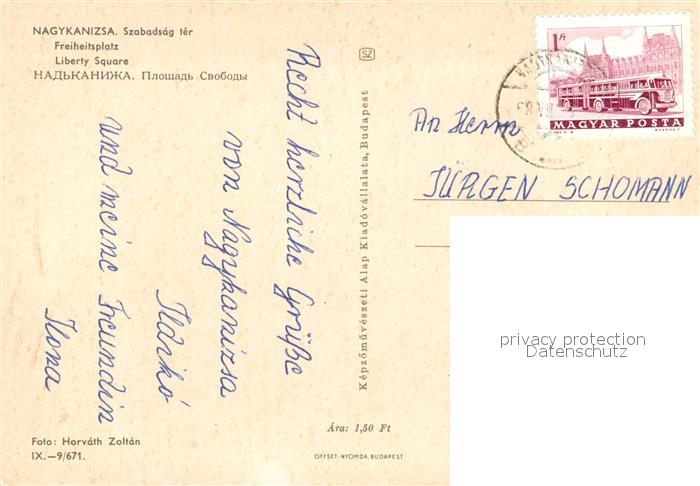 NAGYKANIZSA. Szabadság tér
Freiheitsplatz
Liberty Square
НАДЬКАНИЖА. Площадь Свободы
Recht herzliche Grüße
von Nagykanizsa
Ildikó
und meine Freundin
Ilona
Foto: Horváth Zoltán
IX.—9/671.
SZ
Képzőművészeti Alap Kiadóvállalata, Budapest
Ára: 1,50 Ft
OFFSET-NYOMDA, BUDAPEST
1 Ft
MAGYAR POSTA
An Herrn
JÜRGEN SCHOMANN
privacy protection
Datenschutz